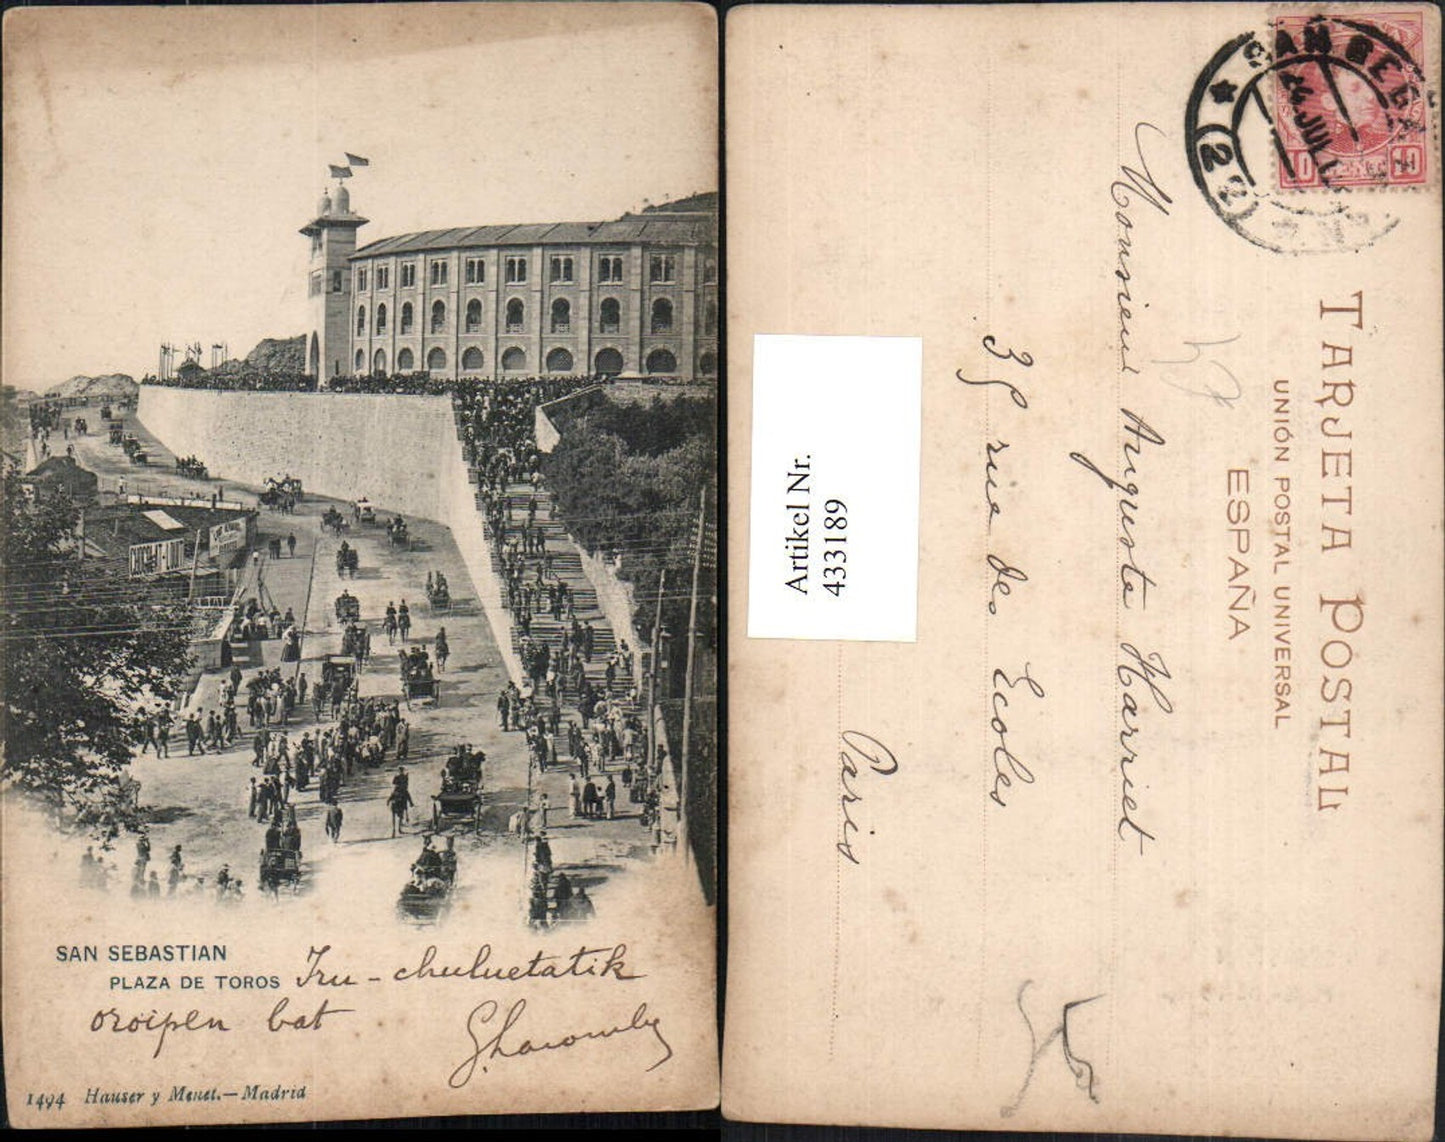 CHOCOLAT-LOUIT
SAN SEBASTIAN
PLAZA DE TOROS
Iru-chuluetatik
oroipen bat
1494 Hauser y Menet.—Madrid
TARJETA POSTAL
UNIÓN POSTAL UNIVERSAL
ESPAÑA
Monsieur Auguste Harriet
39 rue des Ecoles
Paris
Artikel Nr.
433189
SAN SEBA
24 JUL
(22)
10 10